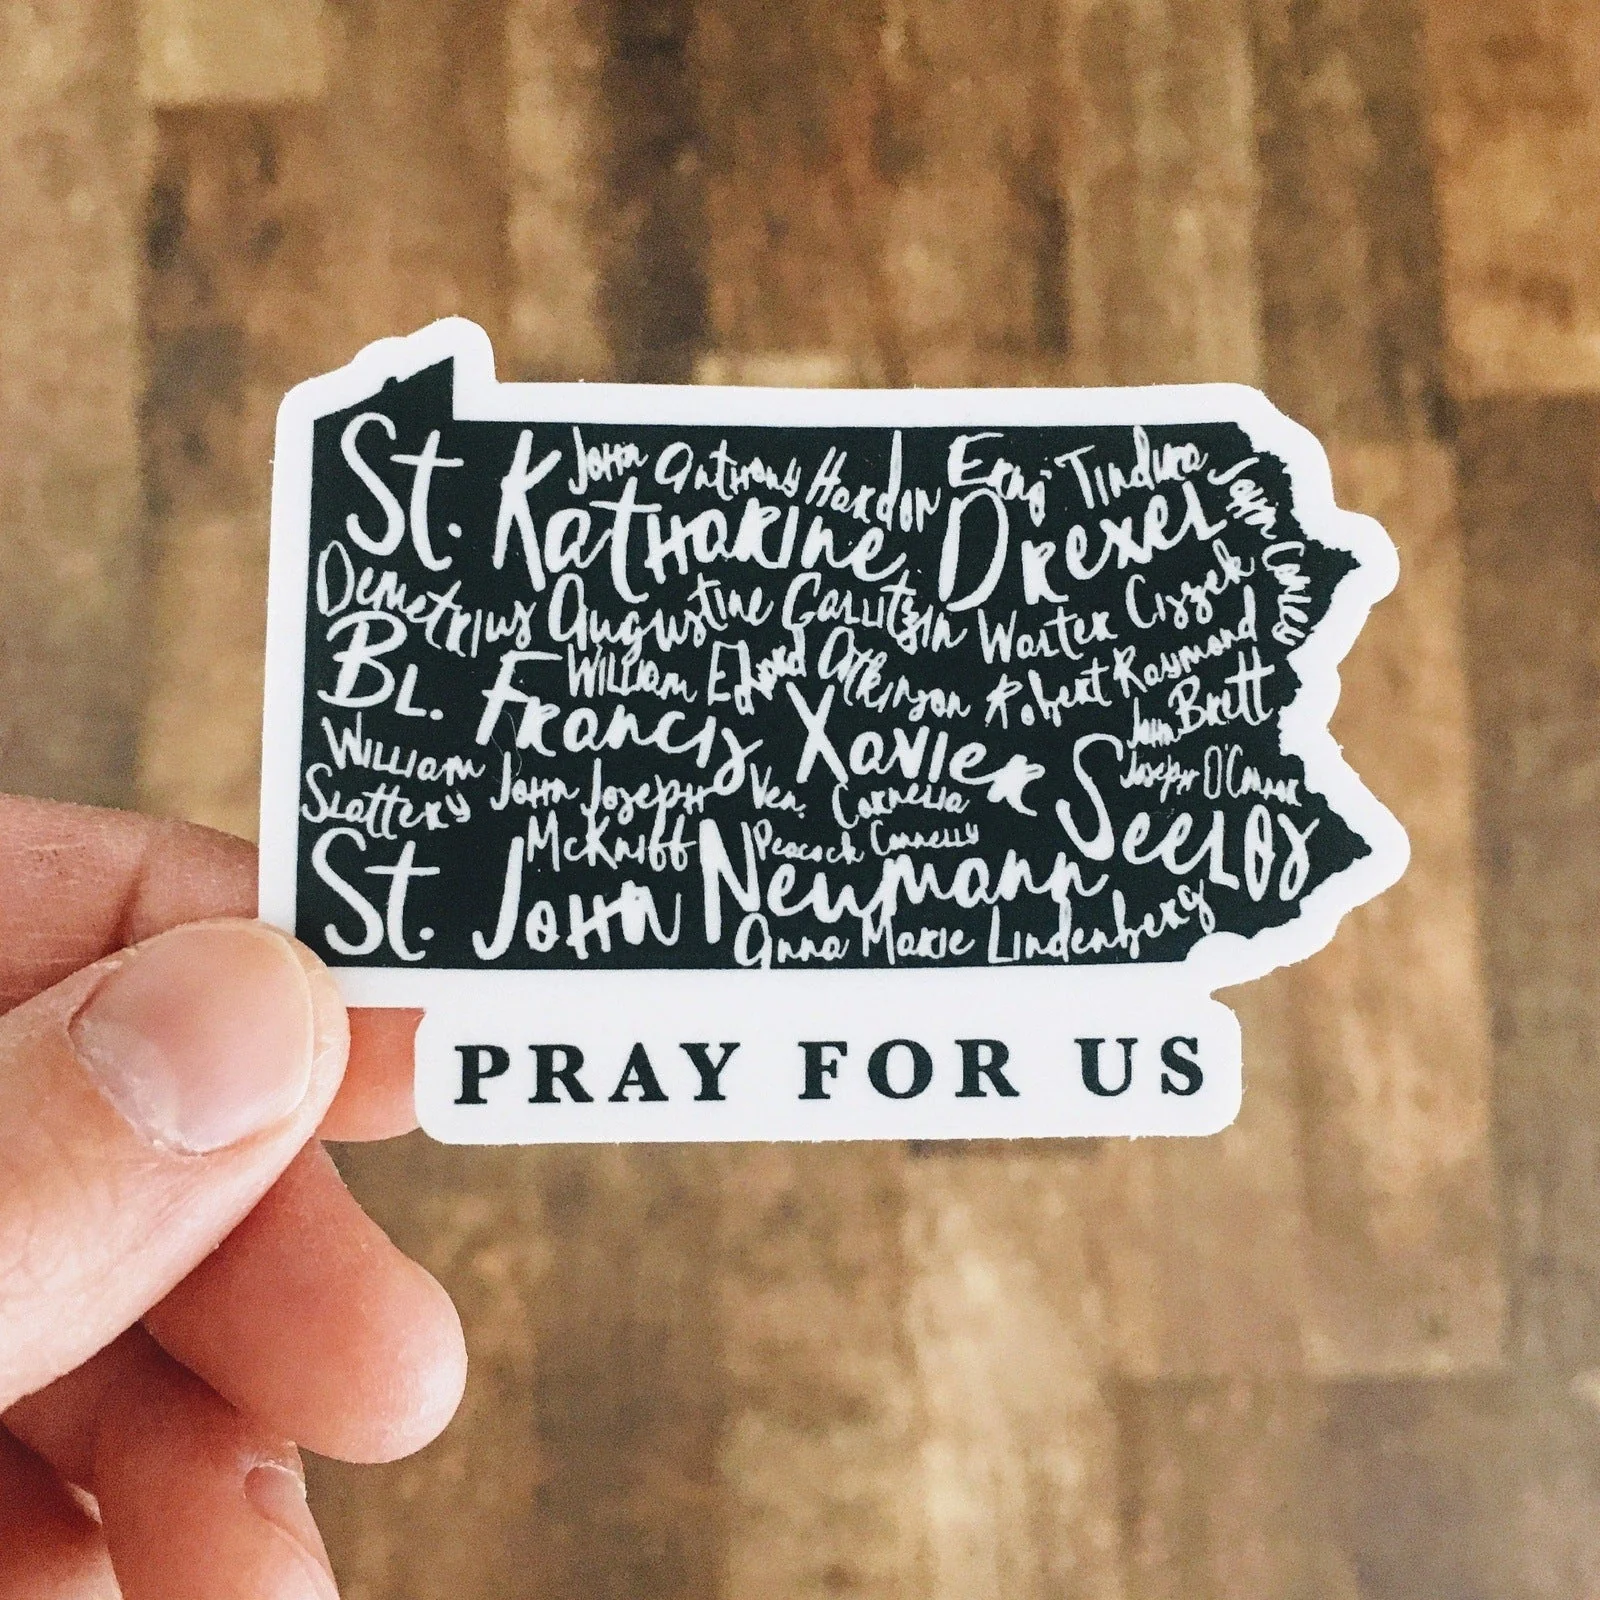 John Anthony Hardon
Erno Tindira
St. Katharine Drexel
John Conley
Demetrius Augustine Gallitzin
Walter Ciszek
Bl. Francis Xavier Seelos
William Edward Atkinson
Robert Raymond
John Brett
William
Slattery
John Joseph
McKniff
Ven. Cornelia
Peacock Connelly
Joseph O'Connor
St. John Neumann
Anna Marie Lindenberg
PRAY FOR US